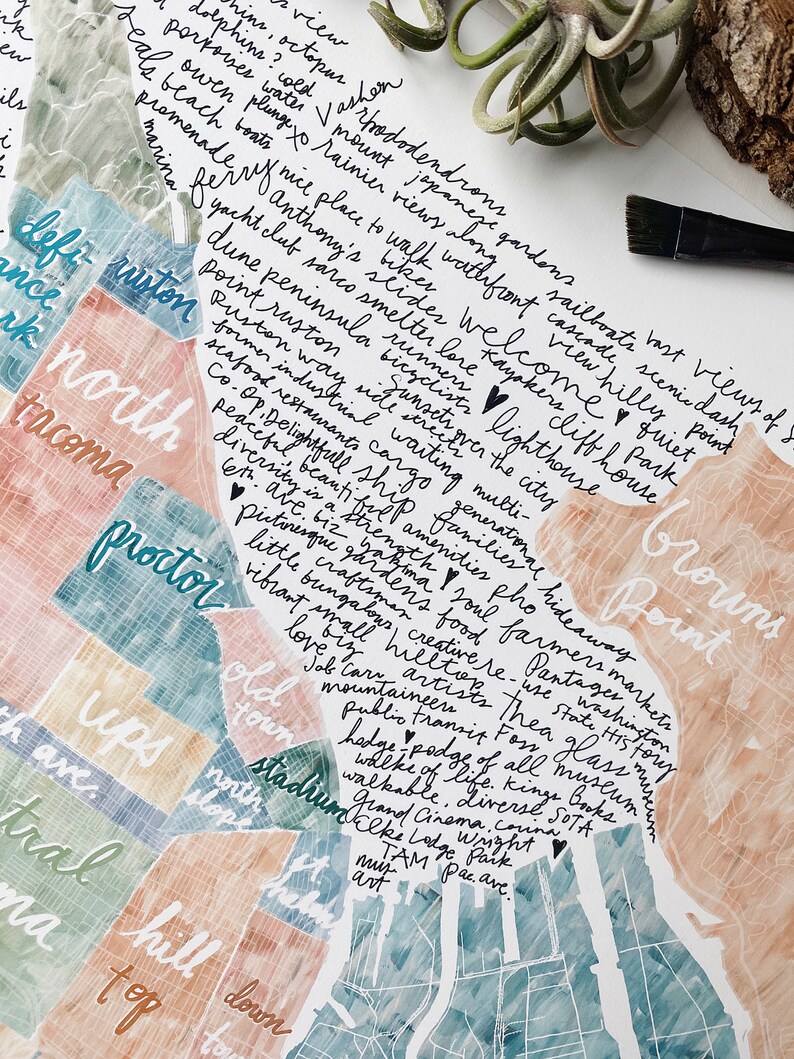 view
octopus
dolphins?
porpoises cold
owen water Vashon
seals beach plunge rhododendrons
promenade boats mount japanese gardens
marina ferry rainier views along
nice place to walk waterfront sailboats vast views of
Anthony's bikes cascade scenic dash
yacht club sarco slides welcome view hilly point
dune peninsula smelter lore kayakers cliff house quiet
point ruston runners bicyclists lighthouse park
Ruston way sunsets over the city
former industrial side streets
seafood restaurants waiting multi-
co-op. Delightfull cargo generational
peaceful, beautiful ship families hideaway
diversity is a strength amenities pho
6th. ave. biz soul farmers markets
picturesque gardens food Pantages
little craftsman creative re-use washington
vibrant bungalows Hilltop State History museum
small biz artists Thea Foss glass museum
love mountaineers
Job Carr
public transit
hodge-podge of all
walks of life. Kings Books
walkable, diverse. SOTA
Grand Cinema, Wright Park
Elks Lodge
TAM Pac. ave.
mus. art
defi-
ance
rk
ruston
north
tacoma
proctor
old
town
ups
th ave.
north
slope
stadium
tral
ma
hill
top
st
down
tow
browns
Point